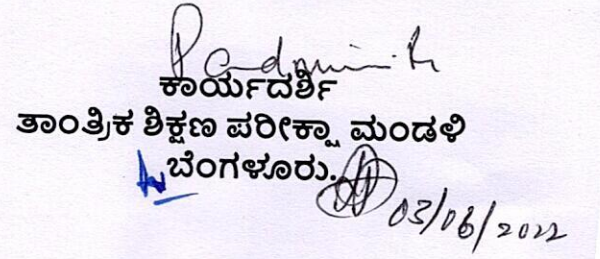 ಕಾರ್ಯದರ್ಶಿ
ತಾಂತ್ರಿಕ ಶಿಕ್ಷಣ ಪರೀಕ್ಷಾ ಮಂಡಳಿ
ಬೆಂಗಳೂರು.
03/06/2022